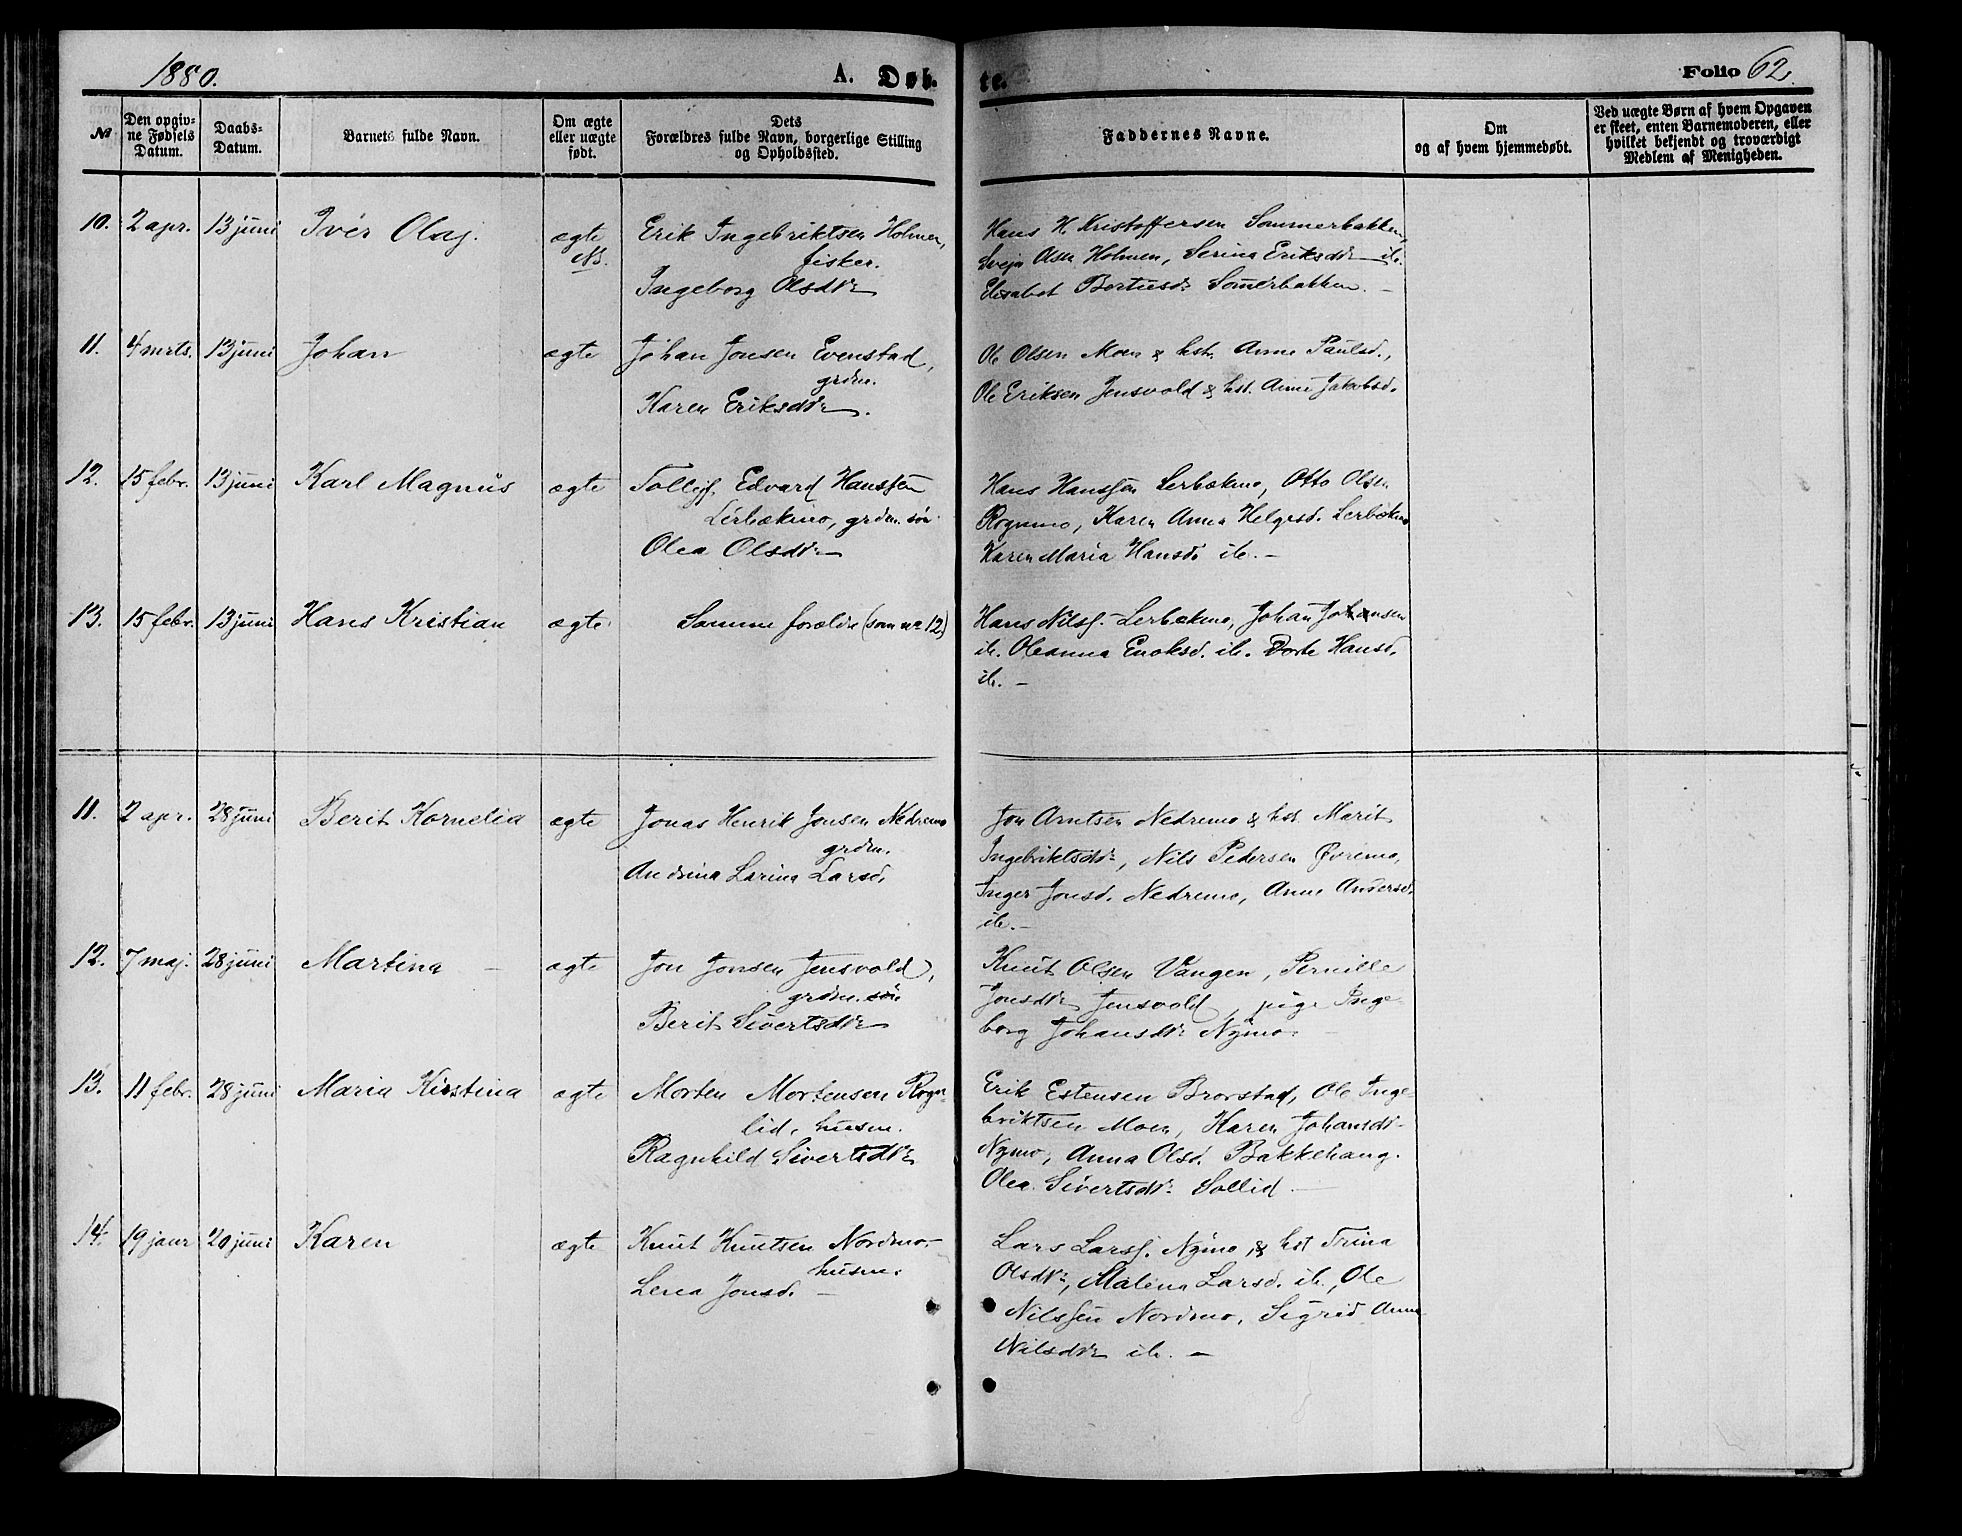 1880.
A. Døb-
te.
Folio 62.
No
Den opgiv-
ne Fødsels
Datum.
Daabs-
Datum.
Barnets fulde Navn.
Om ægte
eller uægte
født.
Dets
Forældres fulde Navn, borgerlige Stilling
og Opholdssted.
Faddernes Navne.
Om
og af hvem hjemmedøbt.
Ved uægte Børn af hvem Opgaven
er skeet, enten Barnemoderen, eller
hvilket bekjendt og troværdigt
Medlem af Menigheden.
10. 2 apr. 13 juni Iver Olaj. ægte Erik Ingebriktsen Holmen,
NB. fisker.
Ingeborg Olsdtr
Hans H. Kristoffersen Sommerbakken,
Svejn Olsen Holmen, Serina Eriksdtr ib.
Elisabet Bertusdr Sommerbakken. -
11. 4 mrts. 13 juni Johan ægte Johan Jonsen Evenstad,
grdm.
Karen Eriksdtr.
Ole Olsen Moen & hst. Anne Paulsd.,
Ole Eriksen Jensvold & hst. Anne Jakobsd.
12. 15 febr. 13 juni Karl Magnus ægte Tollejf Edvard Hanssen
Lerbækmo, grdm. søn
Olea Olsdtr
Hans Hanssen Lerbækmo, Otto Olsen
Rognmo, Karen Anna Helgesd. Lerbækmo
Karen Maria Hansd. ib. -
13. 15 febr. 13 juni Hans Kristian ægte Samme forældre (som nr 12)
Hans Nilss. Lerbækmo, Johan Johansen
ib. Oleanna Enoksd. ib. Dorte Hansd.
ib. -
11. 2 apr. 28 juni Berit Kornelia ægte Jonas Henrik Jonsen Nedremo
grdm.
Andrina Larina Larsd.
Jon Arntsen Nedremo & hst. Marit
Ingebriktsdtr, Nils Pedersen Øvremo,
Inger Jonsd. Nedremo, Anne Andersd.
ib. -
12. 7 maj. 28 juni Martina - ægte Jon Jonsen Jensvold,
grdm. søn
Berit Sivertsdtr
Knut Olsen Vangen, Pernille
Jonsdtr Jensvold, pige Inge-
borg Johansdtr Nymo. -
13. 11 febr. 28 juni Maria Kirstina ægte Morten Mortensen Rogn-
lid, husm.
Ragnhild Sivertsdtr
Erik Estensen Brorstad, Ole Inge-
briktsen Moen, Karen Johansdtr
Nymo, Anna Olsd. Bakkehaug.
Olea Sivertsdtr Sollid -
14. 19 janr 20 juni Karen ægte Knut Knutsen Nordmo-
husm.
Lena Jonsd. -
Lars Larss. Nymo, & hst Trina
Olsdtr, Malena Larsd. ib., Ole
Nilssen Nordmo, Sigrid Anna
Nilsdtr ib. -